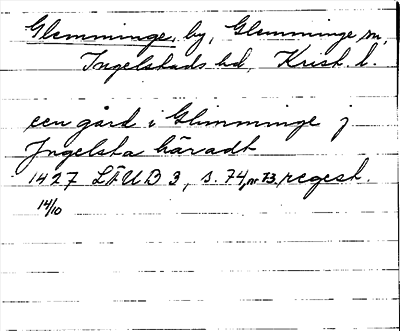 Glemminge, by, Glemminge sn,
Ingelstads hd, Krist. l.
een gård i Glimminge j
Jngelsta häradt
1427 LÄUB 3, s. 74, nr 73, regest.
14/10